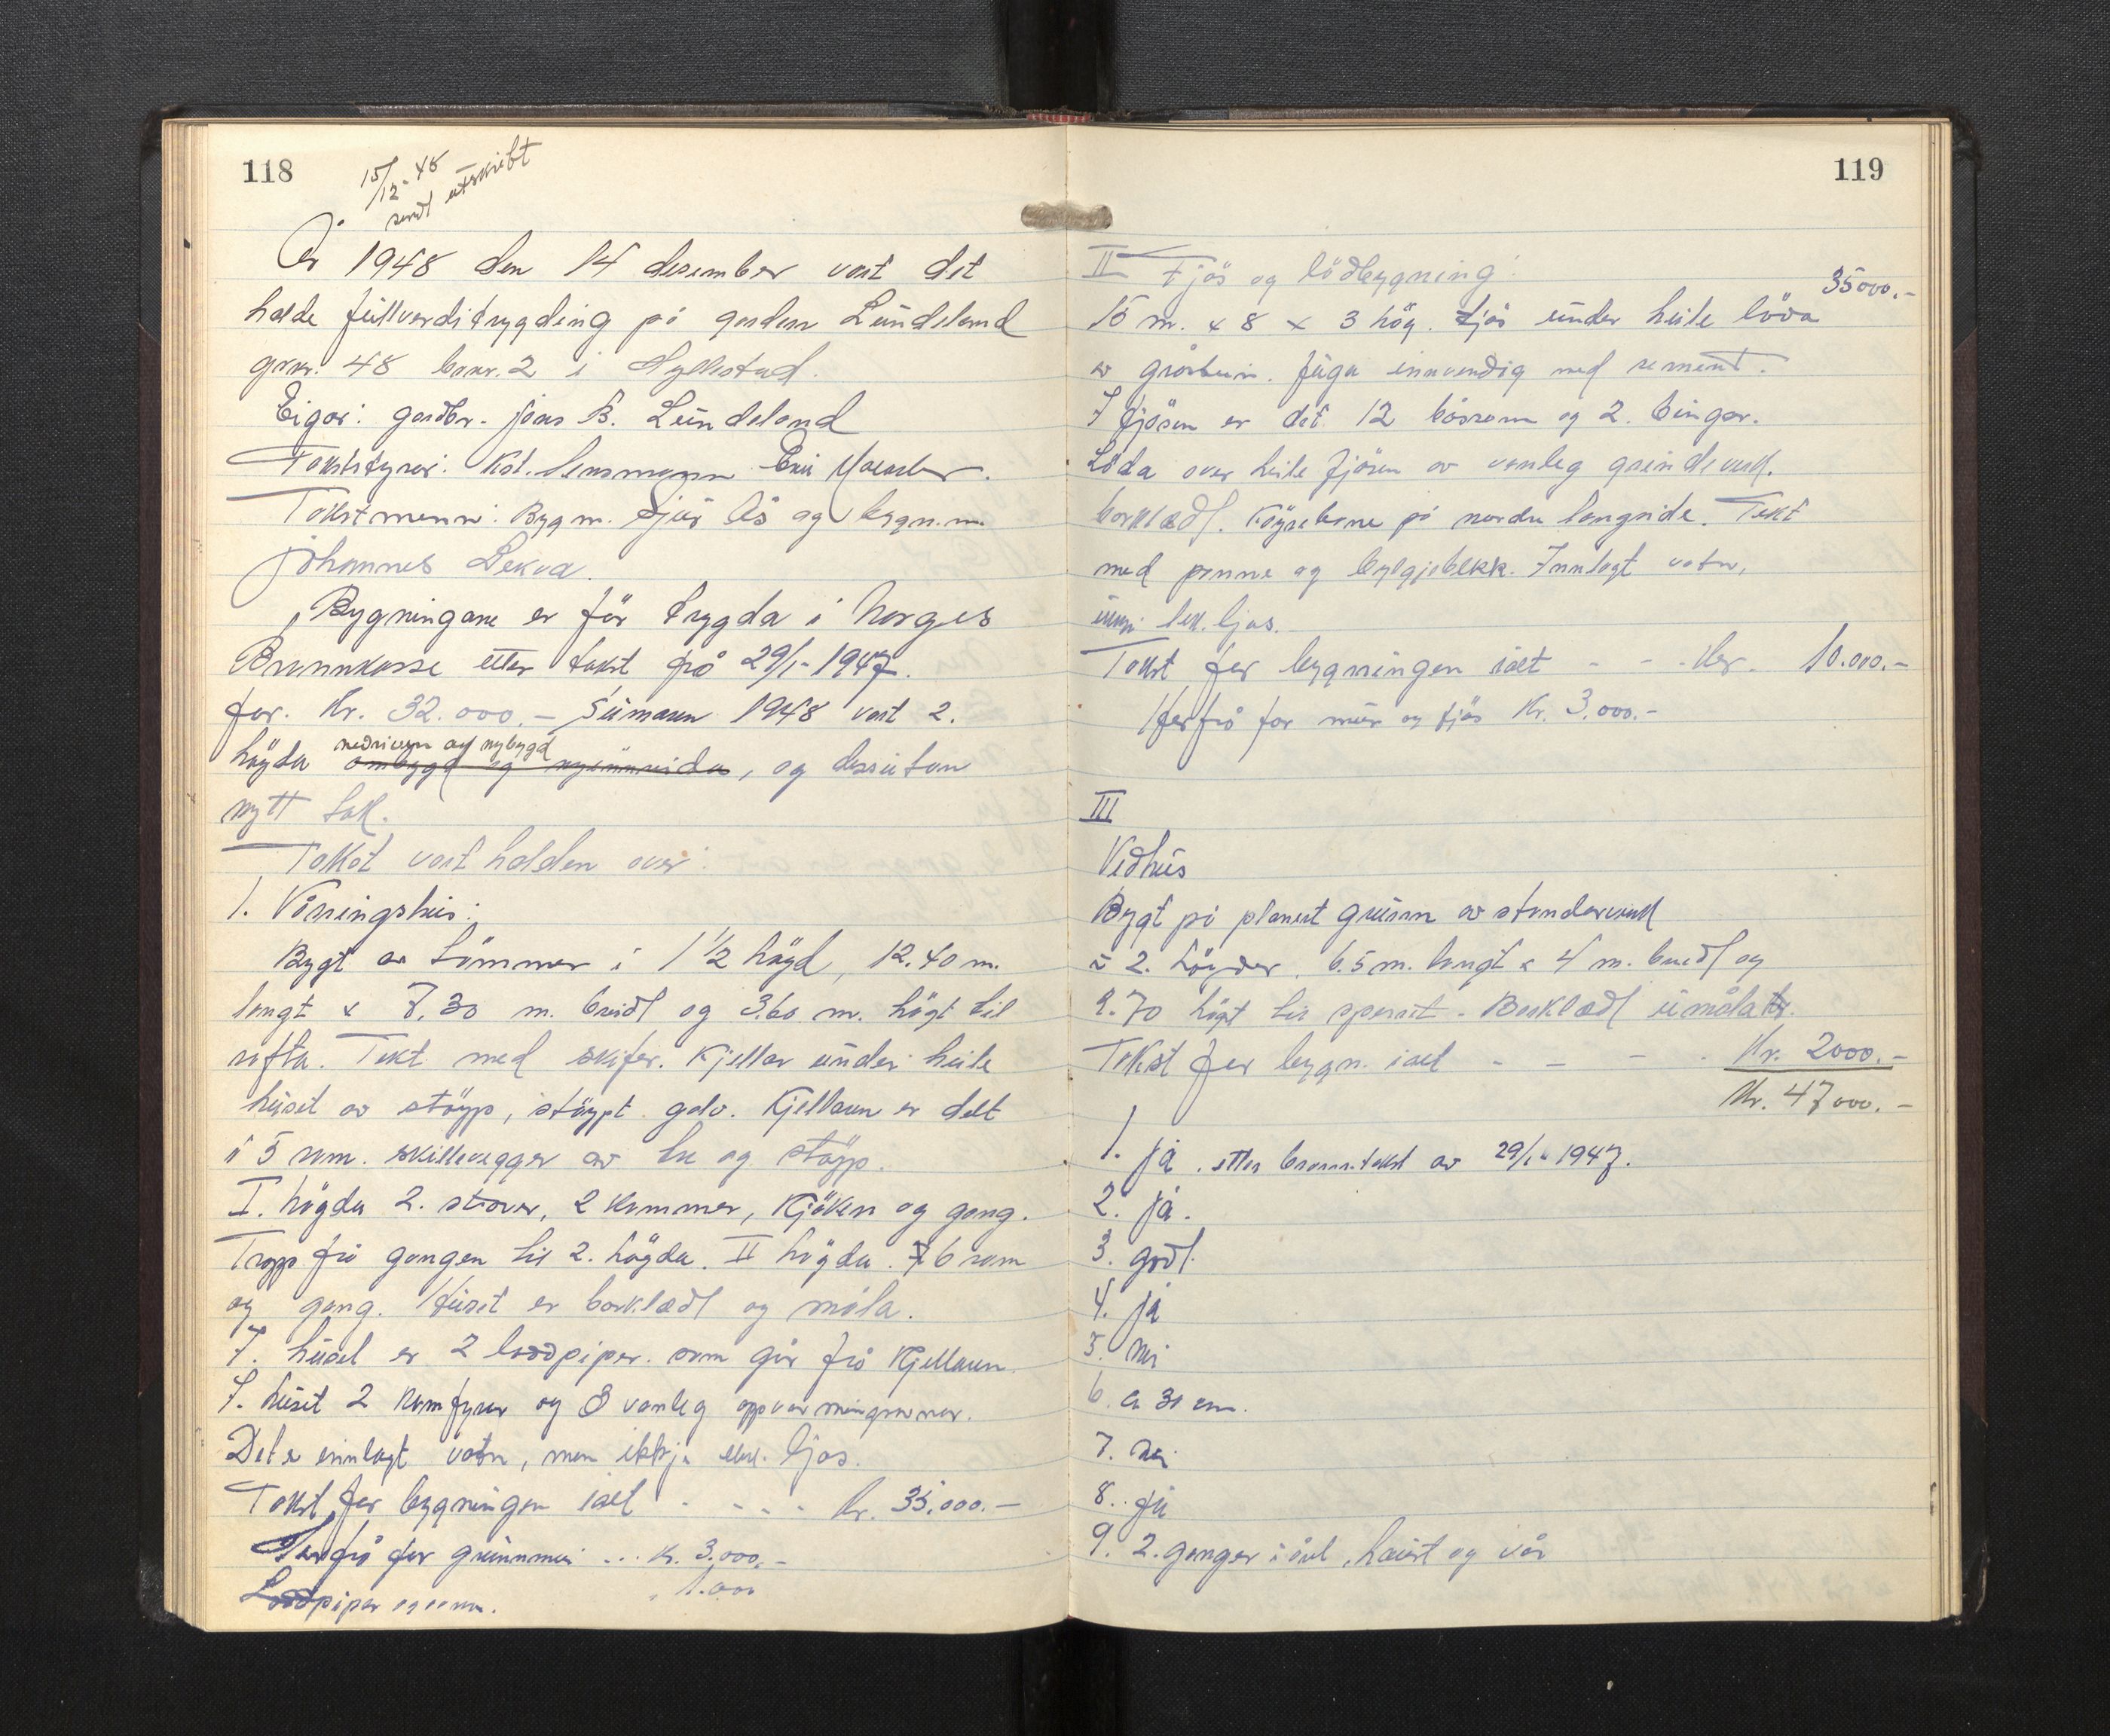 118
15/12-48
sendt utskrift
År 1948 den 14 desember vart det
halde fullverditrygding på garden Lundeland
gnr. 48 bnr. 2 i Hyllestad.
Eigar: gardbr. Jens B. Lundeland
Takststyrar: Kst. lensmann
Takstmenn: Bygm. Sjur Ås og bygn.m.
Johannes Lekva.
Bygningane er før trygda i Norges
Brannkasse etter takst frå 29/1-1947.
for. Kr. 32.000.- Sumaren 1948 vart 2.
nedriven og nybygd
høgda ombygd og nyinnreida, og dessutan
nytt tak.
Takst vart halden over:
1. Våningshus:
Bygt av tømmer i 1 1/2 høgd, 12.40 m.
langt x 7.30 m. breidt og 3.60 m. høgt til
rafta. Tekt med skifer. Kjellar under heile
huset av støyp, støypt golv. Kjellaren er delt
i 5 rom. skillevegger av tre og støyp.
I. høgda 2. stover, 2 kammer, Kjøken og gang.
Trapp frå gangen til 2. høgda. II høgda. 6 rom
og gang. Huset er borklædt og måla.
I. huset er 2 brandpiper. som går frå Kjellaren.
I. huset 2 komfyrar og 8 vanleg oppvarmingsomnar.
Det er innlagt vatn, men ikkje elek. ljos.
Takst for bygningen ialt - - - - kr. 35.000.-
Herfrå for grunnmur ... kr. 3.000.-
piper og omn. " 1.000
119
II Fjøs og lødbygning:
35000.-
15 m. x 8 x 3 høg. Fjøs under heile løda
av gråstein. fuga innvendig med sement.
I fjøsen er det 12 båsrom og 2. bingar.
Løda over heile fjøsen av vanleg grindverk.
borklædt. Køyrebrue på nordre langside. Tekt
med panne og bylgjeblekk. Innlagt vatn,
elek. ljos.
Takst for bygningen ialt - - - Kr. 10.000.-
Herfrå for mur og fjøs Kr. 3.000.-
III
Vedhus
Bygt på planert grunn av standerverk
i 2. høgder. 6.5 m. langt x 4 m. breidt og
høgt til sperret. Borklædt umåla.
Takst for bygn. ialt - - - - Kr. 2000.-
Kr. 47000.-
1. ja. etter brann.takst av 29/1-1947.
2. ja.
3. godt.
4. ja
5. nei
6. ca 30 cm.
7. nei
8. ja
9. 2. ganger i året, haust og vår